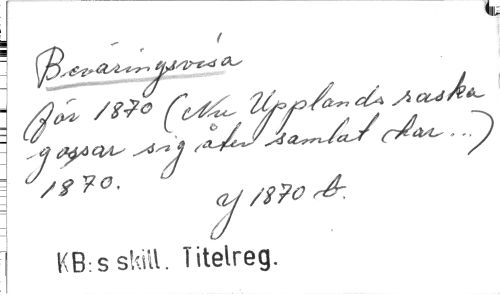 Beväringsvisa
för 1870 (Nu Upplands raska
gossar sig åter samlat har...)
1870.
y 1870 b.
KB:s skill. Titelreg.